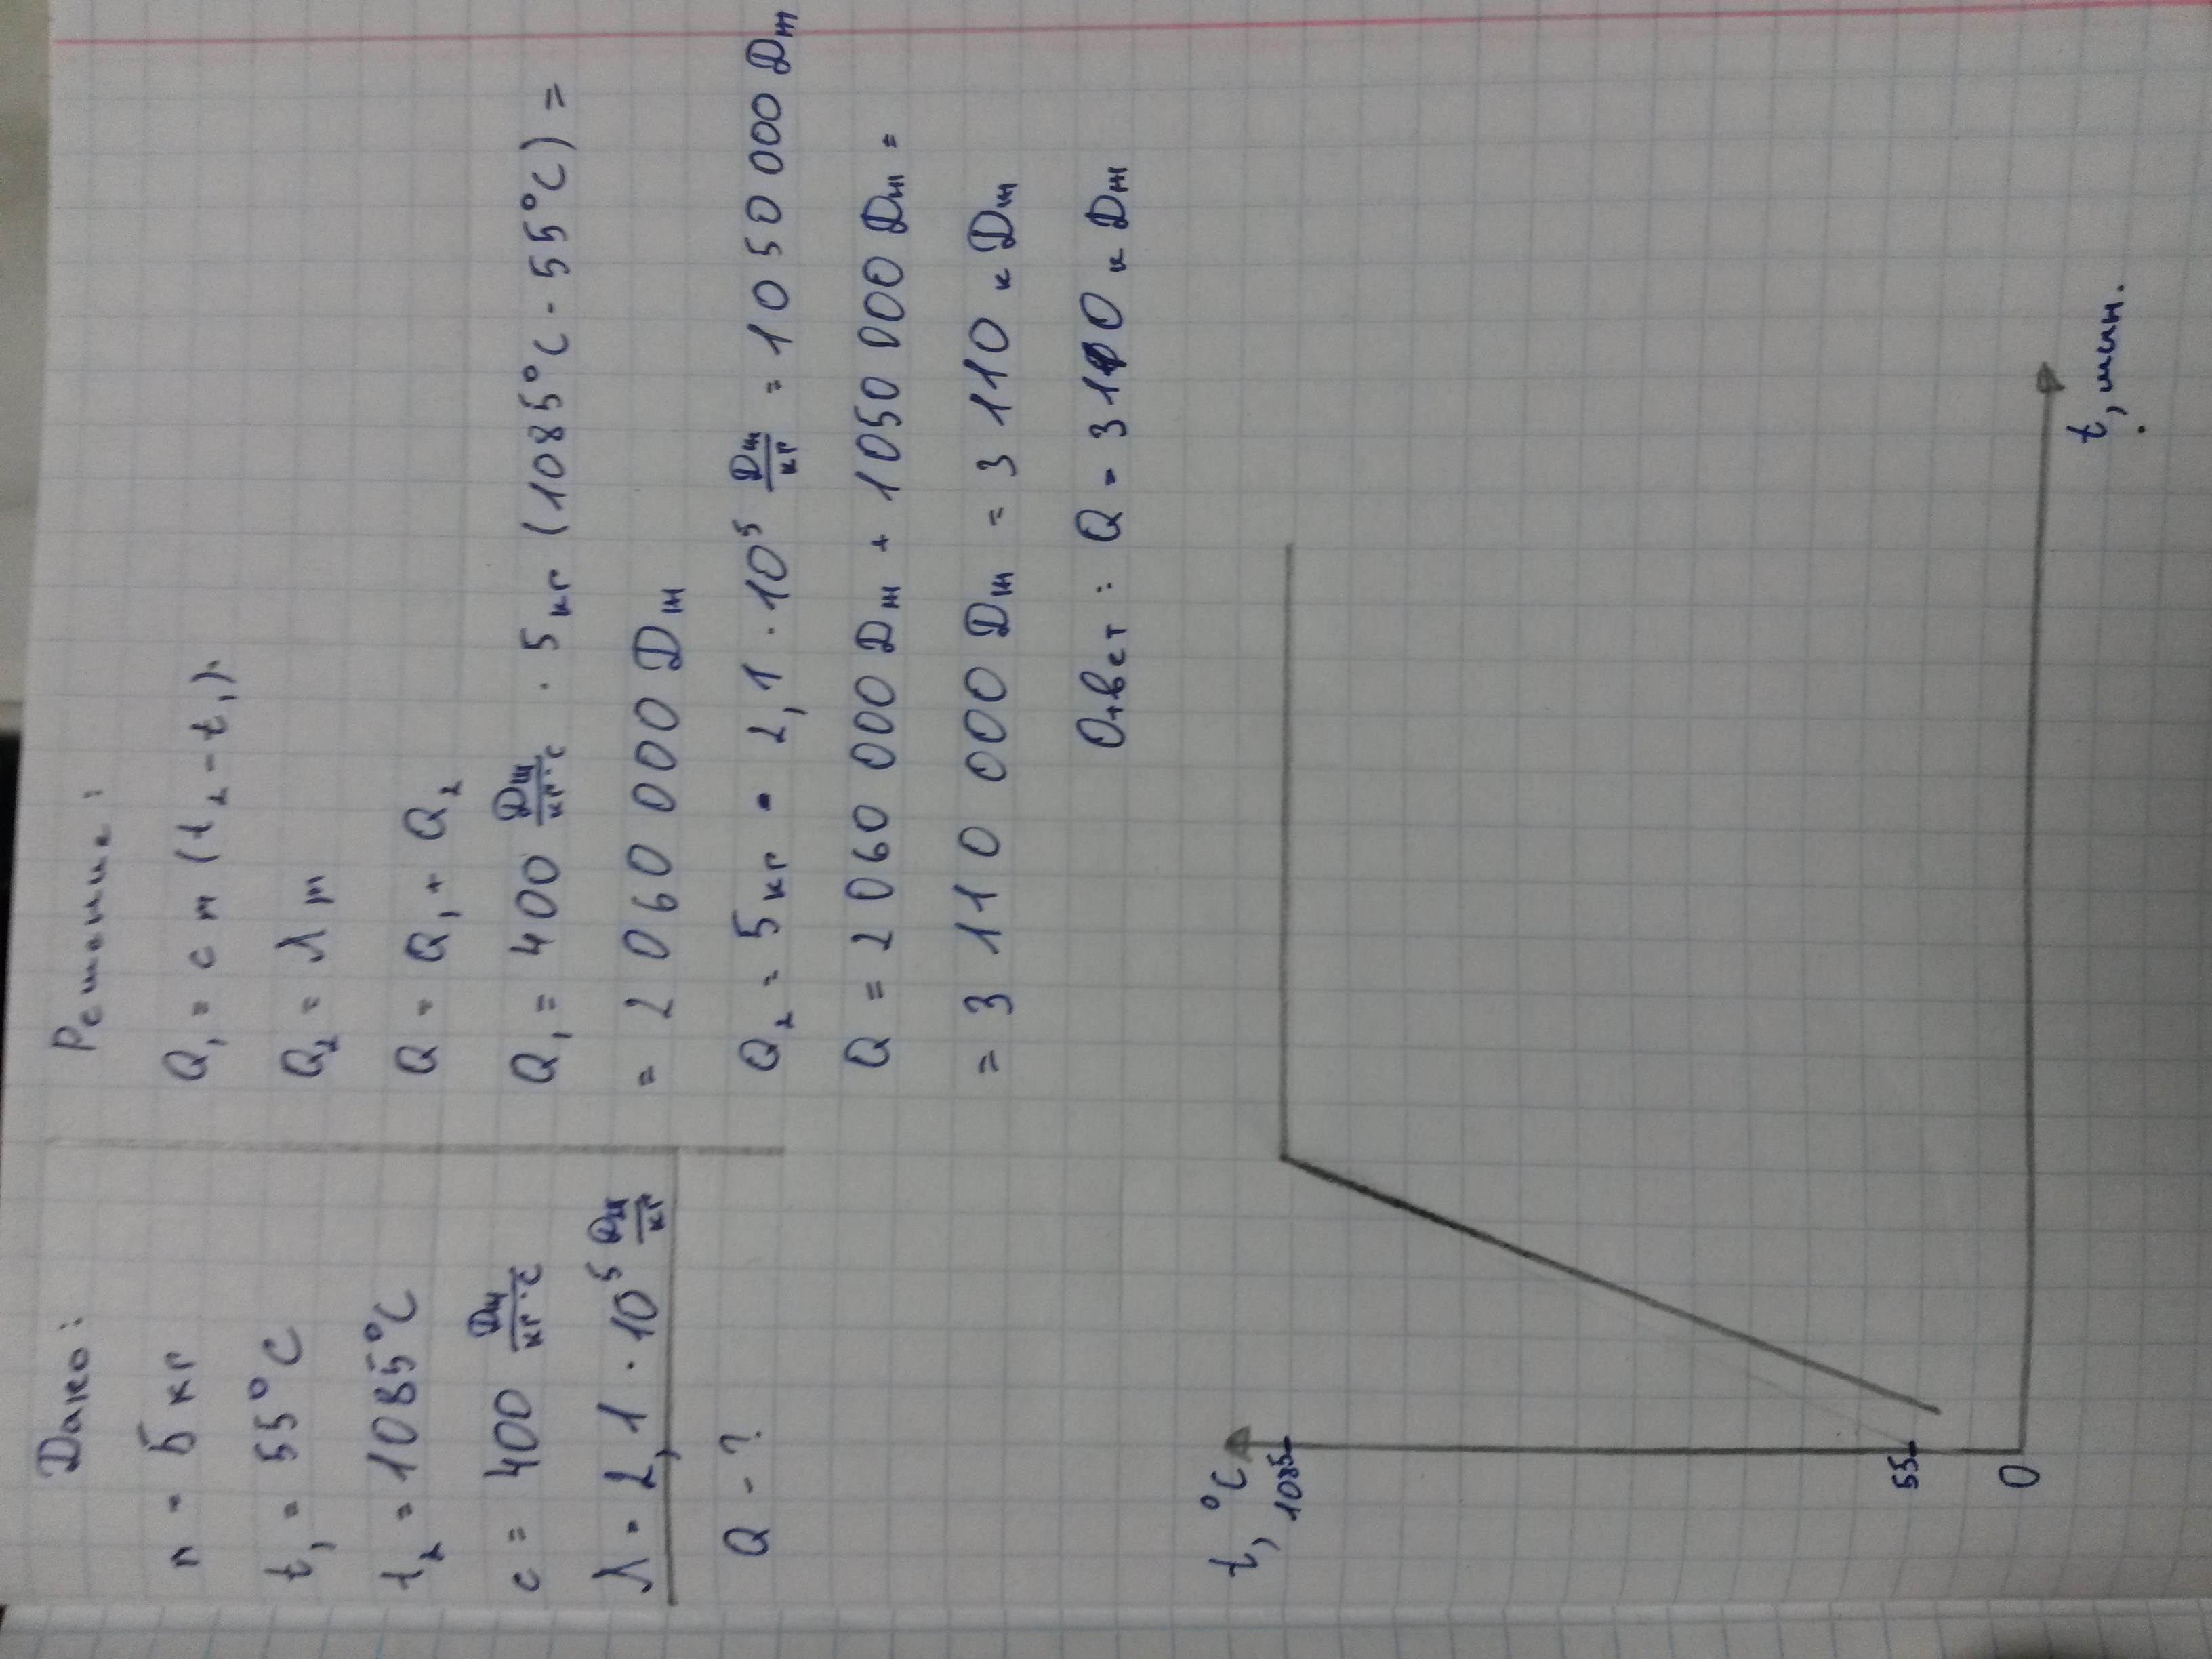 Дано:
m = 5 кг
t₁ = 55°C
t₂ = 1085°C
c = 400 Дж/кг·°C
λ = 2,1 · 10⁵ Дж/кг
Q - ?
Решение:
Q₁ = c m (t₂ - t₁)
Q₂ = λ m
Q = Q₁ + Q₂
Q₁ = 400 Дж/кг·°C · 5 кг (1085°C - 55°C) =
= 2 060 000 Дж
Q₂ = 5 кг · 2,1 · 10⁵ Дж/кг = 1 050 000 Дж
Q = 2 060 000 Дж + 1 050 000 Дж =
= 3 110 000 Дж = 3 110 кДж
Ответ: Q = 3110 кДж
t, °C
1085
55
0
t, мин.